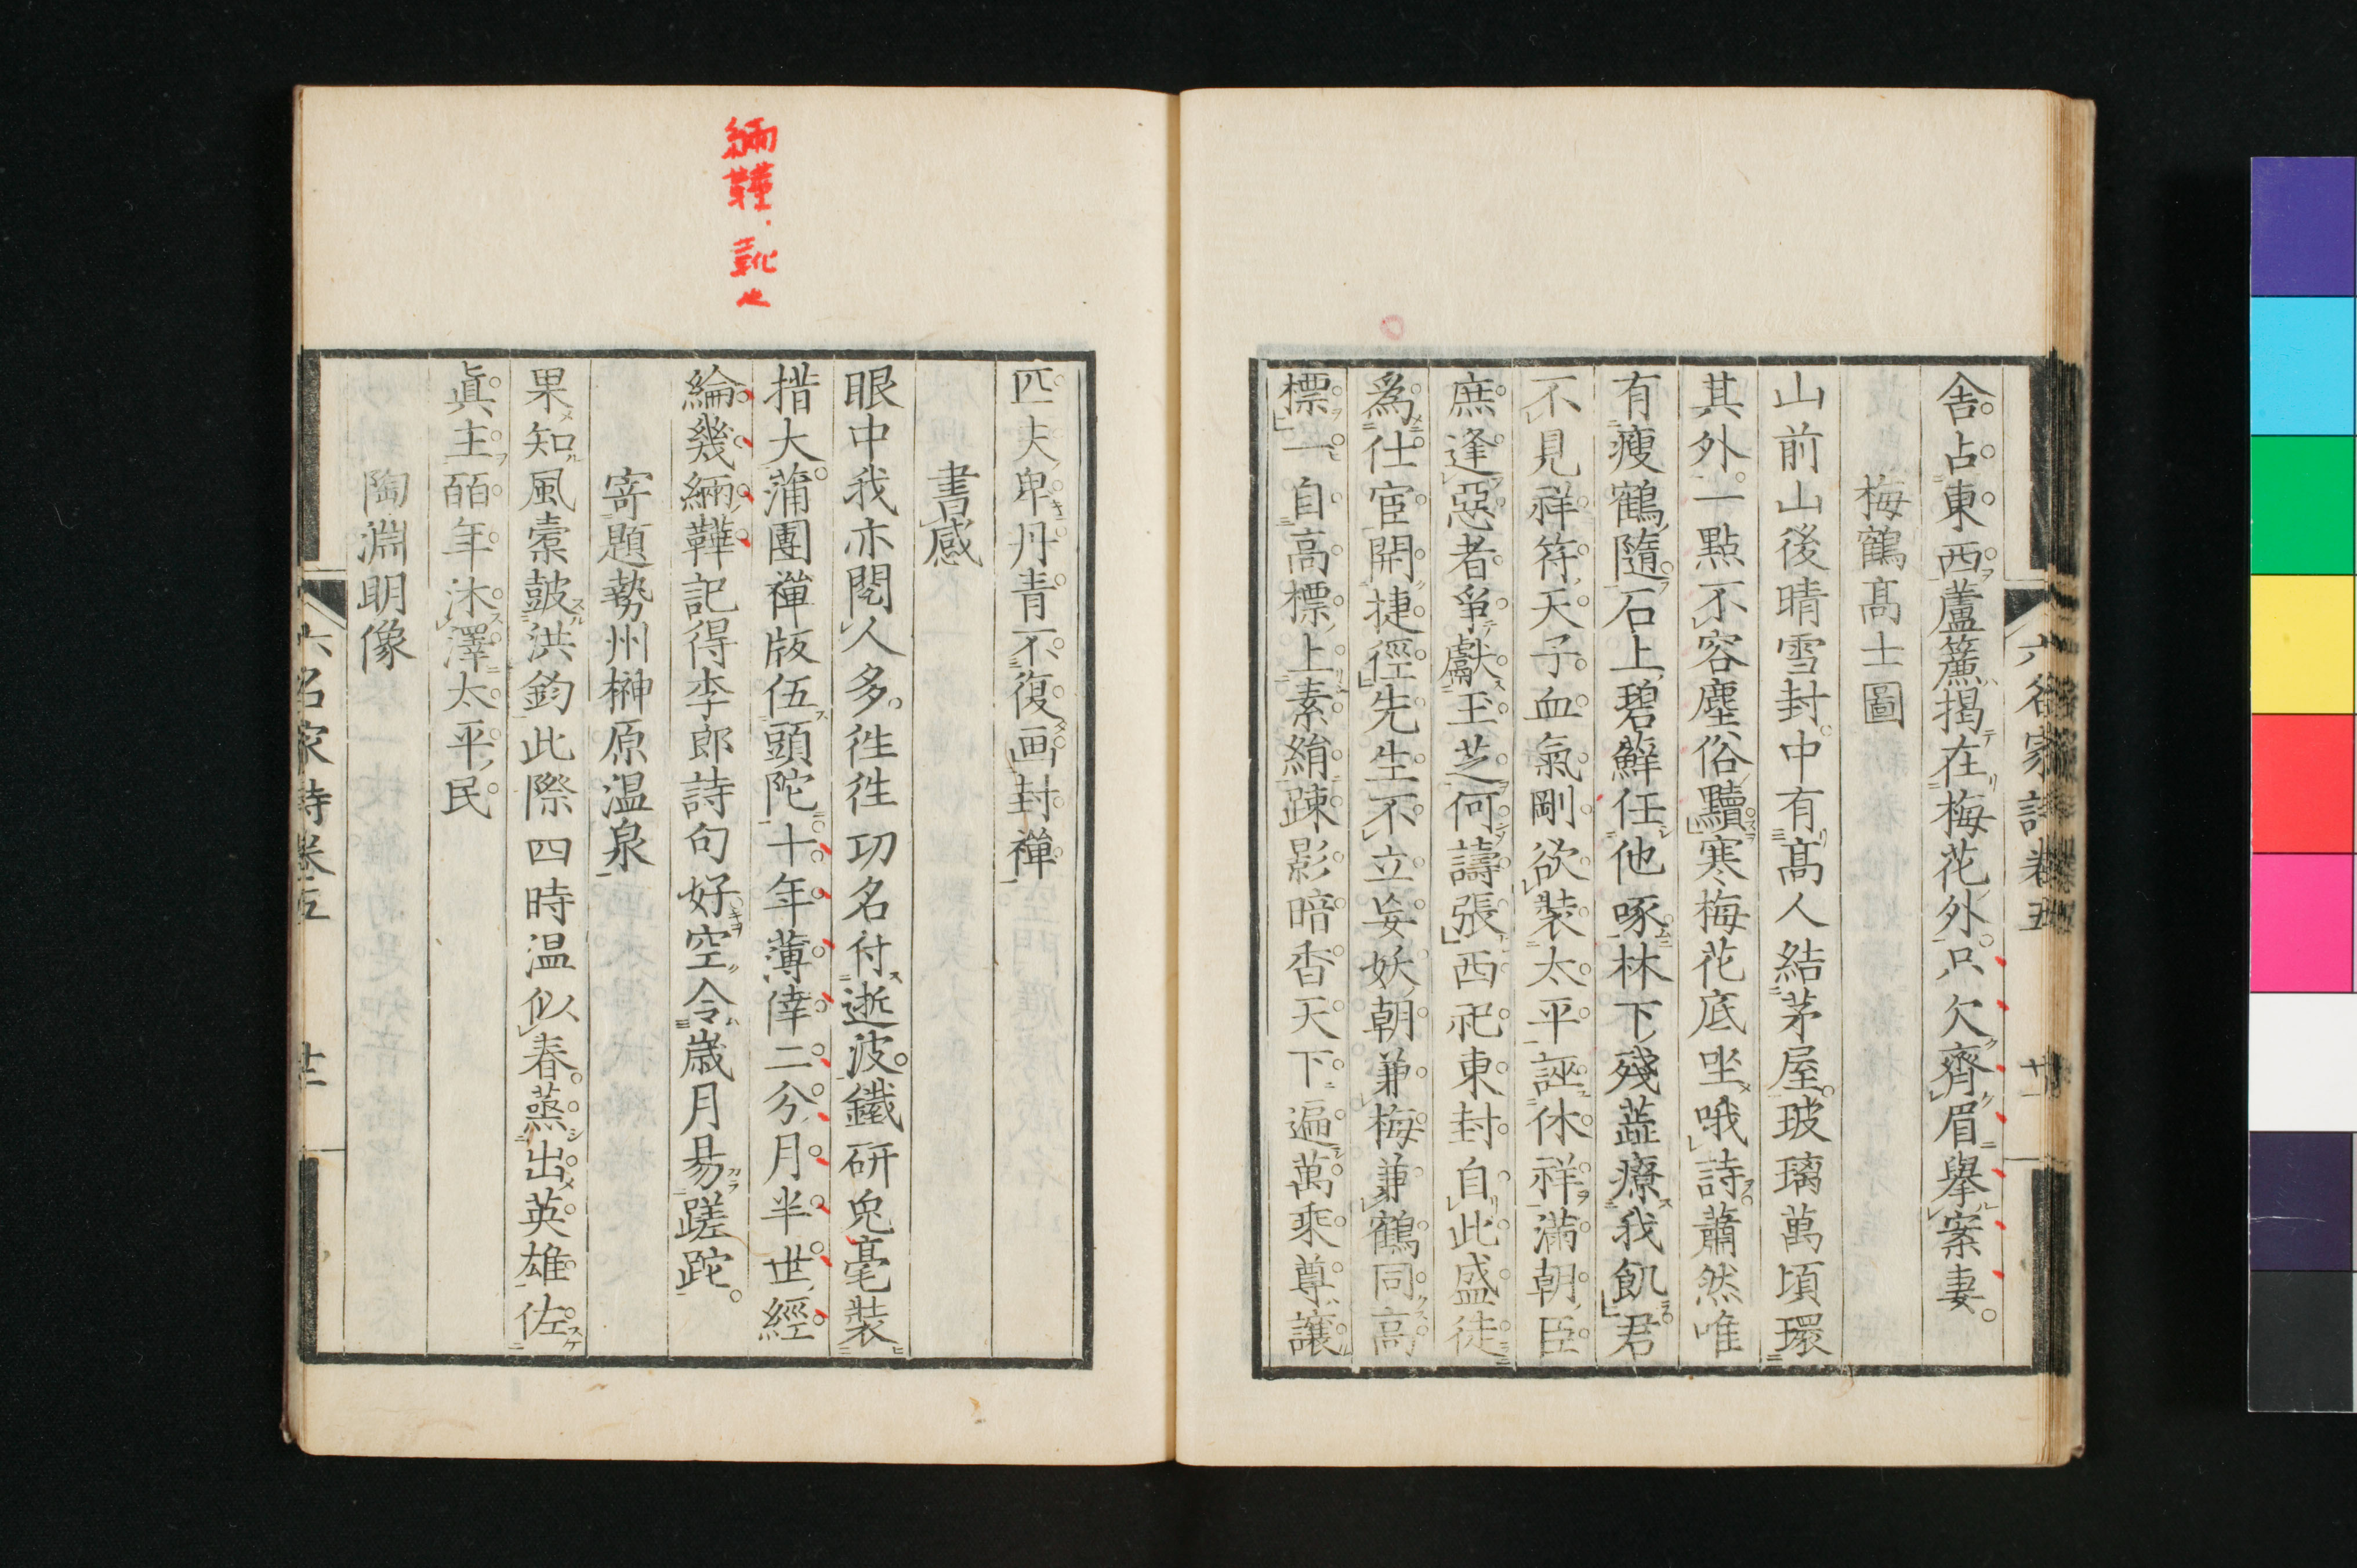 舎占東西蘆簾揭在梅花外只欠齊眉擧案妻
梅鶴高士圖
山前山後晴雪封中有髙人結茅屋玻璃萬頃環
其外一點不容塵俗黷寒梅花底坐哦詩蕭然唯
有瘦鶴隨石上碧蘚任他啄林下殘蘁療我飢君
不見祥符天子血氣剛欲裝太平誣休祥滿朝臣
庶逢惡者爭獻玉芝何譸張西祀東封自此盛徒
爲仕宦開捷徑先生不立妄妖朝兼梅兼鶴同高
標一自高標上素絹踈影暗香天下遍萬乘尊讓
六名家詩卷五
廿一
匹夫卑丹青不復画封禪
書感
眼中我亦閱人多徃徃功名付逝波鐵研兎毫裝
措大蒲團禪版伍頭陀十年薄倖二分月半世經
綸幾緉鞾記得李郎詩句好空令歳月易蹉跎
寄題勢州榊原温泉
果知風橐皷洪鈞此際四時温似春蒸出英雄佐
眞主皕年沐澤太平民
陶淵明像
六名家詩卷五
廿二
緉鞾・靴也